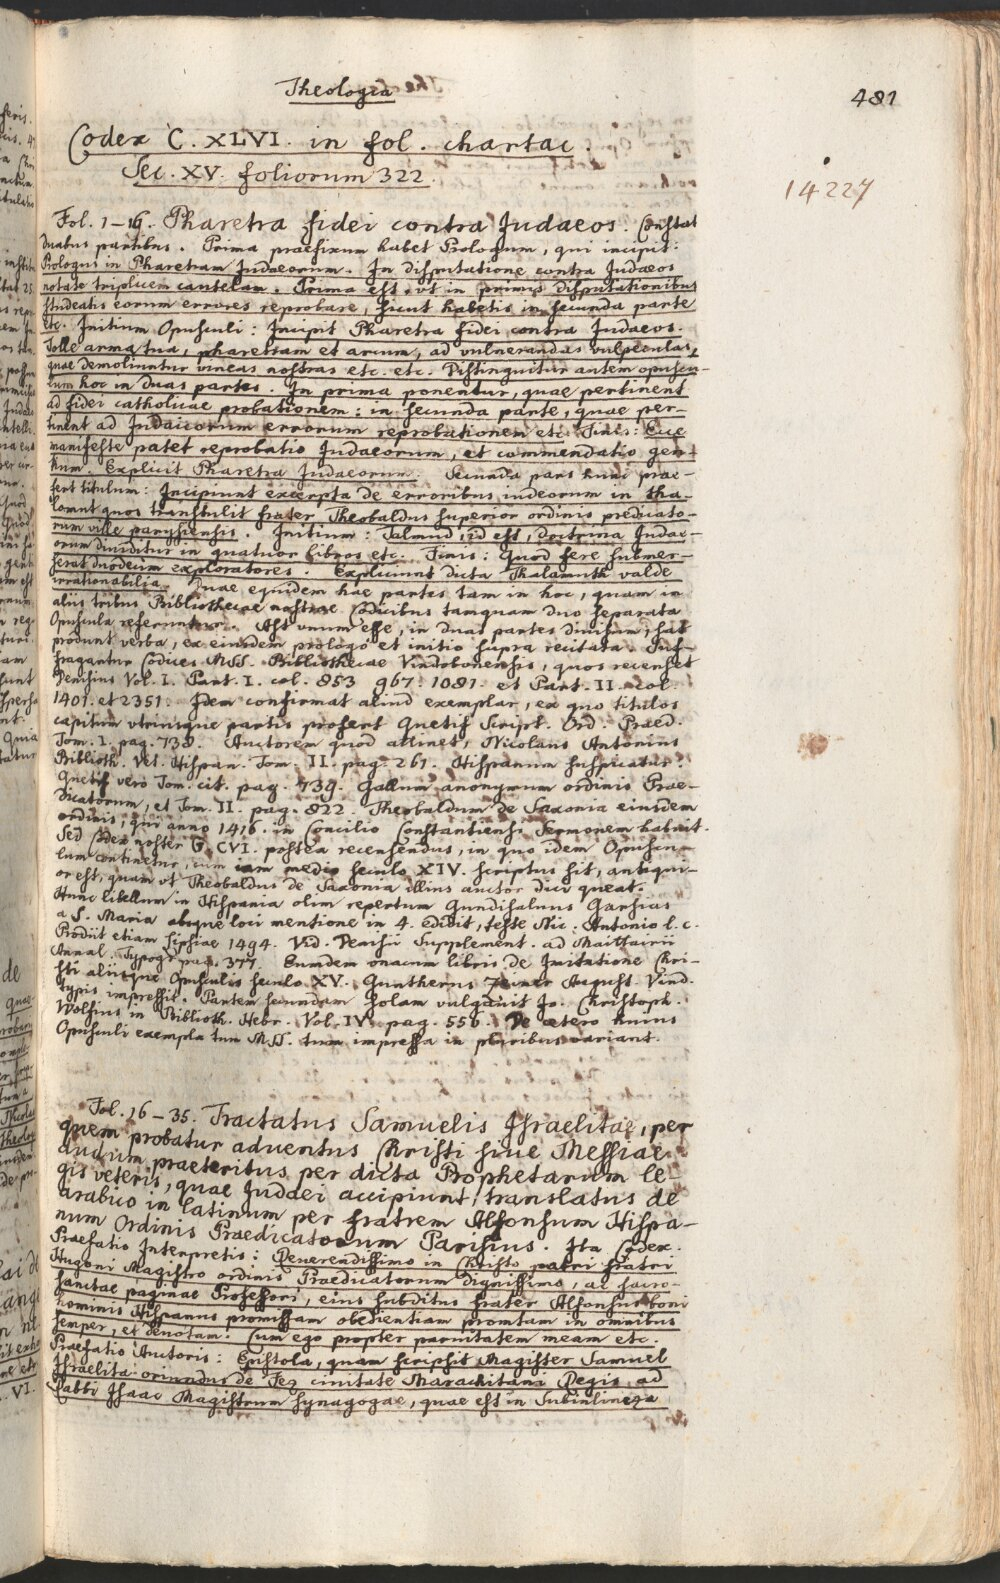 Theologia
481
Codex C. XLVI. in fol. chartac.
Sec. XV. foliorum 322.
14224
Fol. 1–16. Pharetra fidei contra Judaeos. Constat
duabus partibus. Prima praefixum habet Prologum, qui incipit:
Prologus in Pharetram Judaeorum. In disputatione contra Judaeos
notate triplicem cautelam. Prima est, ut in primis disputationibus
studeatis eorum errores reprobare, sicut habetis in secunda parte
etc. Initium Opusculi: Incipit Pharetra fidei contra Judaeos.
Tolle arma tua, pharetram et arcum, ad vulnerandas vulpeculas,
quae demoliuntur vineas nostras etc. etc. Distinguitur autem opuscu-
lum hoc in duas partes. In prima ponentur, quae pertinent
ad fidei catholicae probationem: in secunda parte, quae per-
tinent ad Judaicorum errorum reprobationem etc. Finis: Ecce
manifeste patet reprobatio Judaeorum, et commendatio gen-
tium. Explicit Pharetra Judaeorum. Secunda pars hunc prae-
fert titulum: Incipiunt excerpta de erroribus iudeorum in tha-
lomut quos transtulit frater Theobaldus superior ordinis predicato-
rum ville parysiensis. Initium: Talmud, id est, doctrina Judae-
orum diuiditur in quatuor libros etc. Finis: quod fere submer-
serat duodecim exploratores. Expliciunt dicta Thalamuth valde
irrationabilia. Quae equidem hae partes tam in hoc, quam in
aliis tribus Bibliothecae nostrae Codicibus tamquam duo separata
Opuscula referuntur. Ast unum esse, in duas partes divisum, sat
produnt verba, ex eiusdem prologo et initio supra recitata. Suf-
fragantur Codices MSS. Bibliothecae Vindobonensis, quos recenset
Denisius Vol. I. Part. I. col. 853 967. 1081. et Part. II. col.
1401. et 2351. Idem confirmat aliud exemplar, ex quo titulos
capitum utriusque partis profert Quetif Script. Ord. Praed.
Tom. I. pag. 738. Auctorem quod attinet, Nicolaus Antonius
Biblioth. Vet. Hispan. Tom. II. pag. 261. Hispanum suspicatur.
Quetif vero Tom. cit. pag. 739. Gallum anonymum ordinis Prae-
dicatorum, et Tom. II. pag. 822. Theobaldum de Saxonia eiusdem
ordinis, qui anno 1416. in Concilio Constantiensi Sermonem habuit.
Sed Codex noster G. CVI. postea recensendus, in quo idem Opuscu-
lum continetur, cum iam medio seculo XIV. scriptus sit, antiqui-
or est, quam ut Theobaldus de Saxonia illius auctor dici queat.
Hunc libellum in Hispania olim repertum Gundisaluus Garsias
a S. Maria absque loci mentione in 4. edidit, teste Nic. Antonio l. c.
Prodiit etiam Lipsiae 1494. Vid. Denisii Supplement. ad Maittairii
Annal. Typogr. pag. 377. Eumdem una cum libris de Imitatione Chri-
sti aliisque Opusculis seculo XV. Guntherus Zeiner August. Vind.
typis impressit. Partem secundam solam vulgavit Jo. Christoph.
Wolfius in Biblioth. Hebr. Vol. IV. pag. 556. De cetero huius
Opusculi exempla tum MSS. tum impressa in pluribus variant.
Fol. 16–35. Tractatus Samuelis Israelitae, per
quem probatur adventus Christi sive Messiae
praeteritus, per dicta Prophetarum le
gis veteris, quae Judaei accipiunt, translatus de
arabico in latinum per fratrem Alfonsum Hispa-
num Ordinis Praedicatorum Parisius. Ita Codex.
Praefatio Interpretis: Reverendissimo in Christo patri fratri
Hugoni Magistro ordinis Praedicatorum dignissimo, ac sacro-
sanctae paginae Professori, eius subditus frater Alfonsus boni
hominis Hispanus promissam obedientiam promtam in omnibus
semper, et devotam. Cum ego propter parvitatem meam etc.
Praefatio Auctoris: Epistola, quam scripsit Magister Samuel
Israelita oriundus de Fez civitate Marachitani Regis ad
Rabbi Isaac Magistrum Synagogae, quae est in Subiulineza